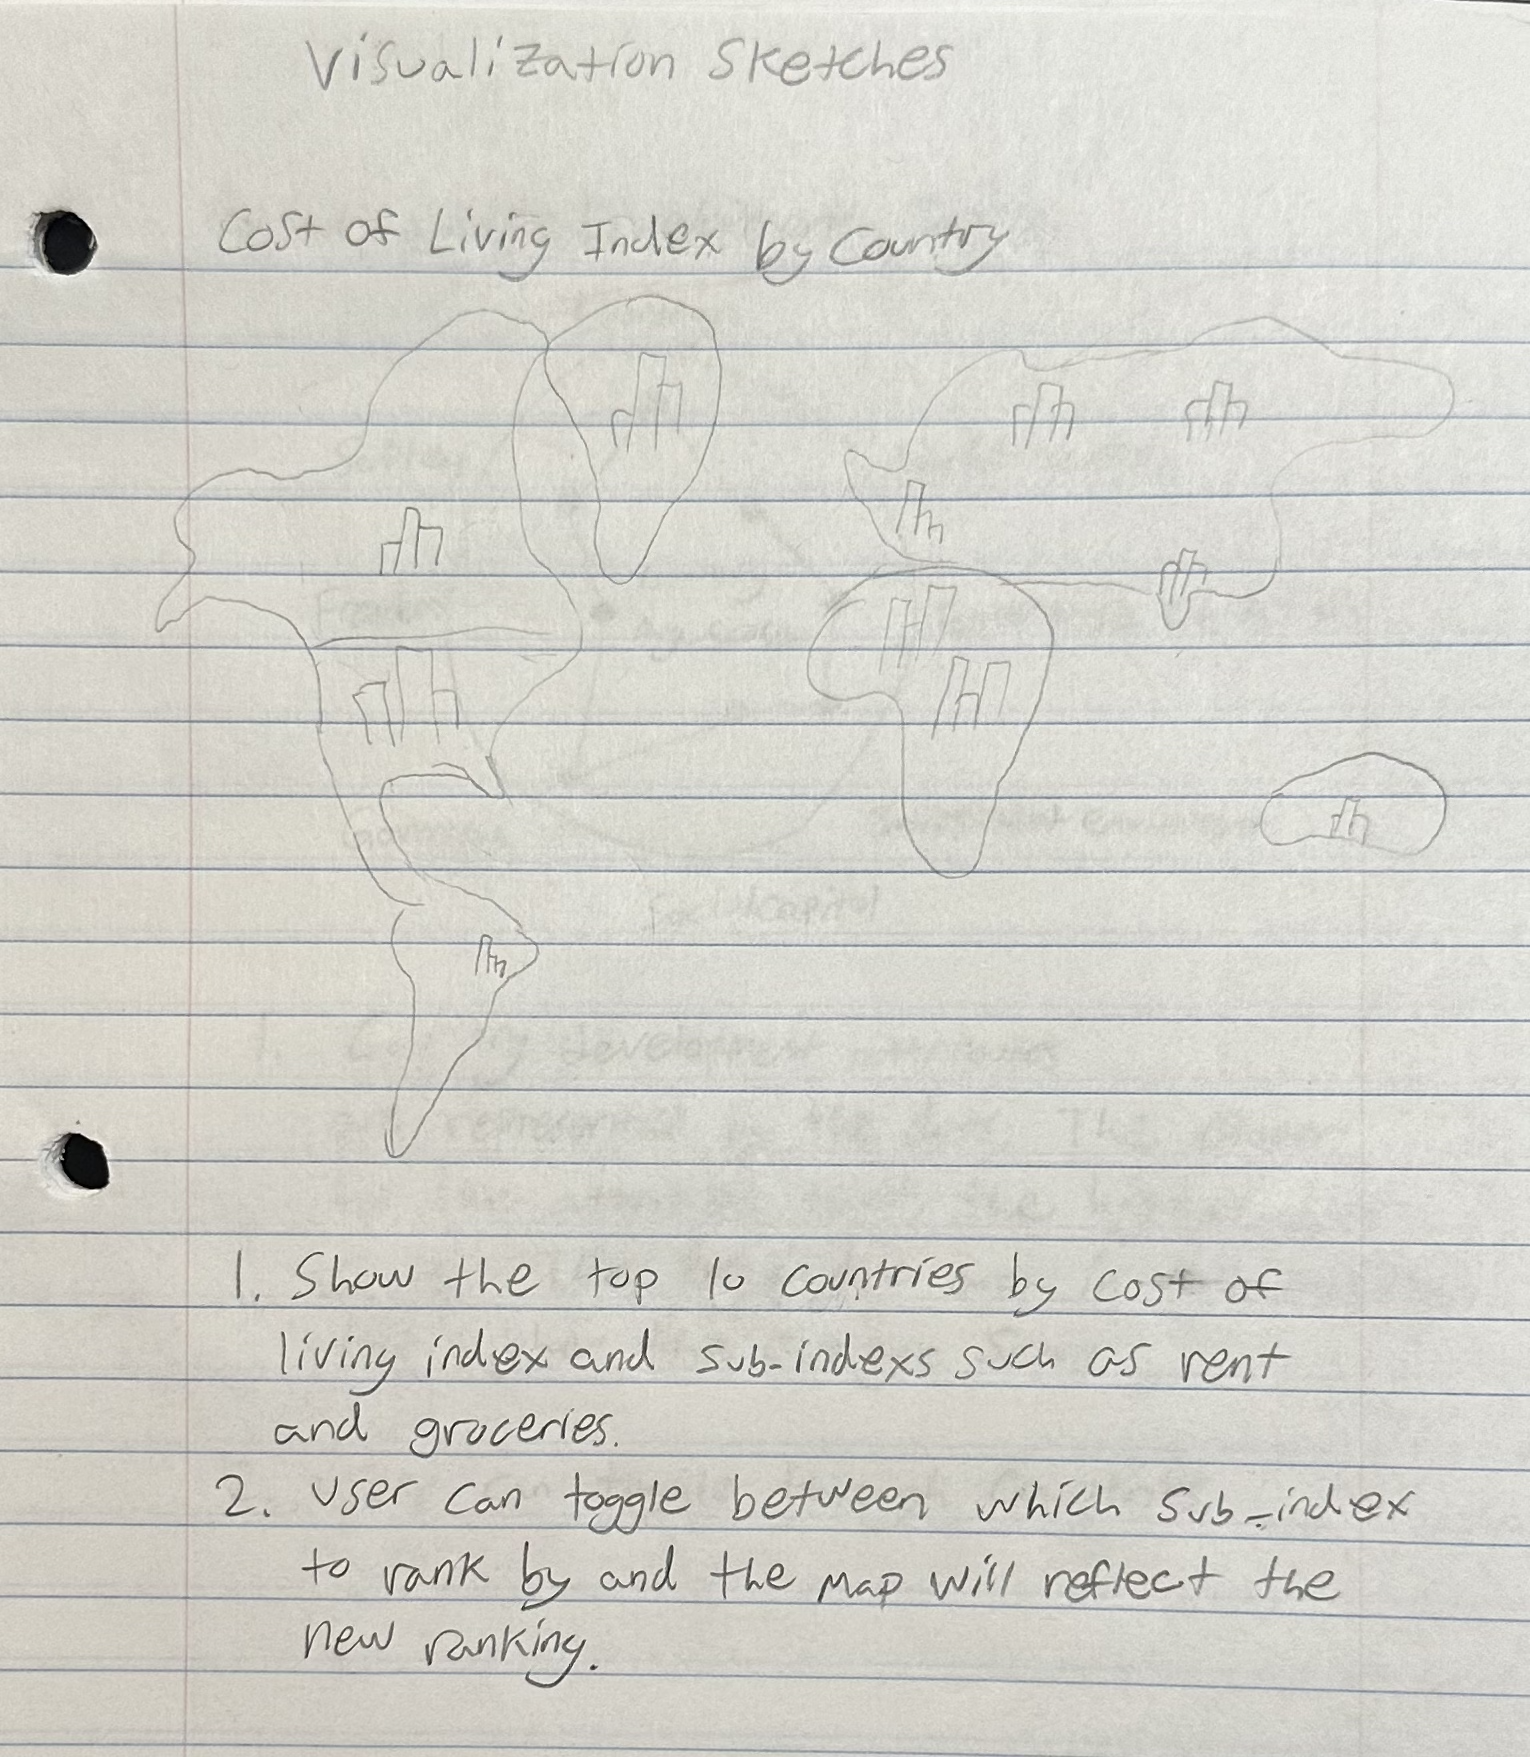 Visualization Sketches
Cost of Living Index by Country
1. Show the top 10 countries by cost of
living index and sub-indexs such as rent
and groceries.
2. User can toggle between which sub-index
to rank by and the map will reflect the
new ranking.